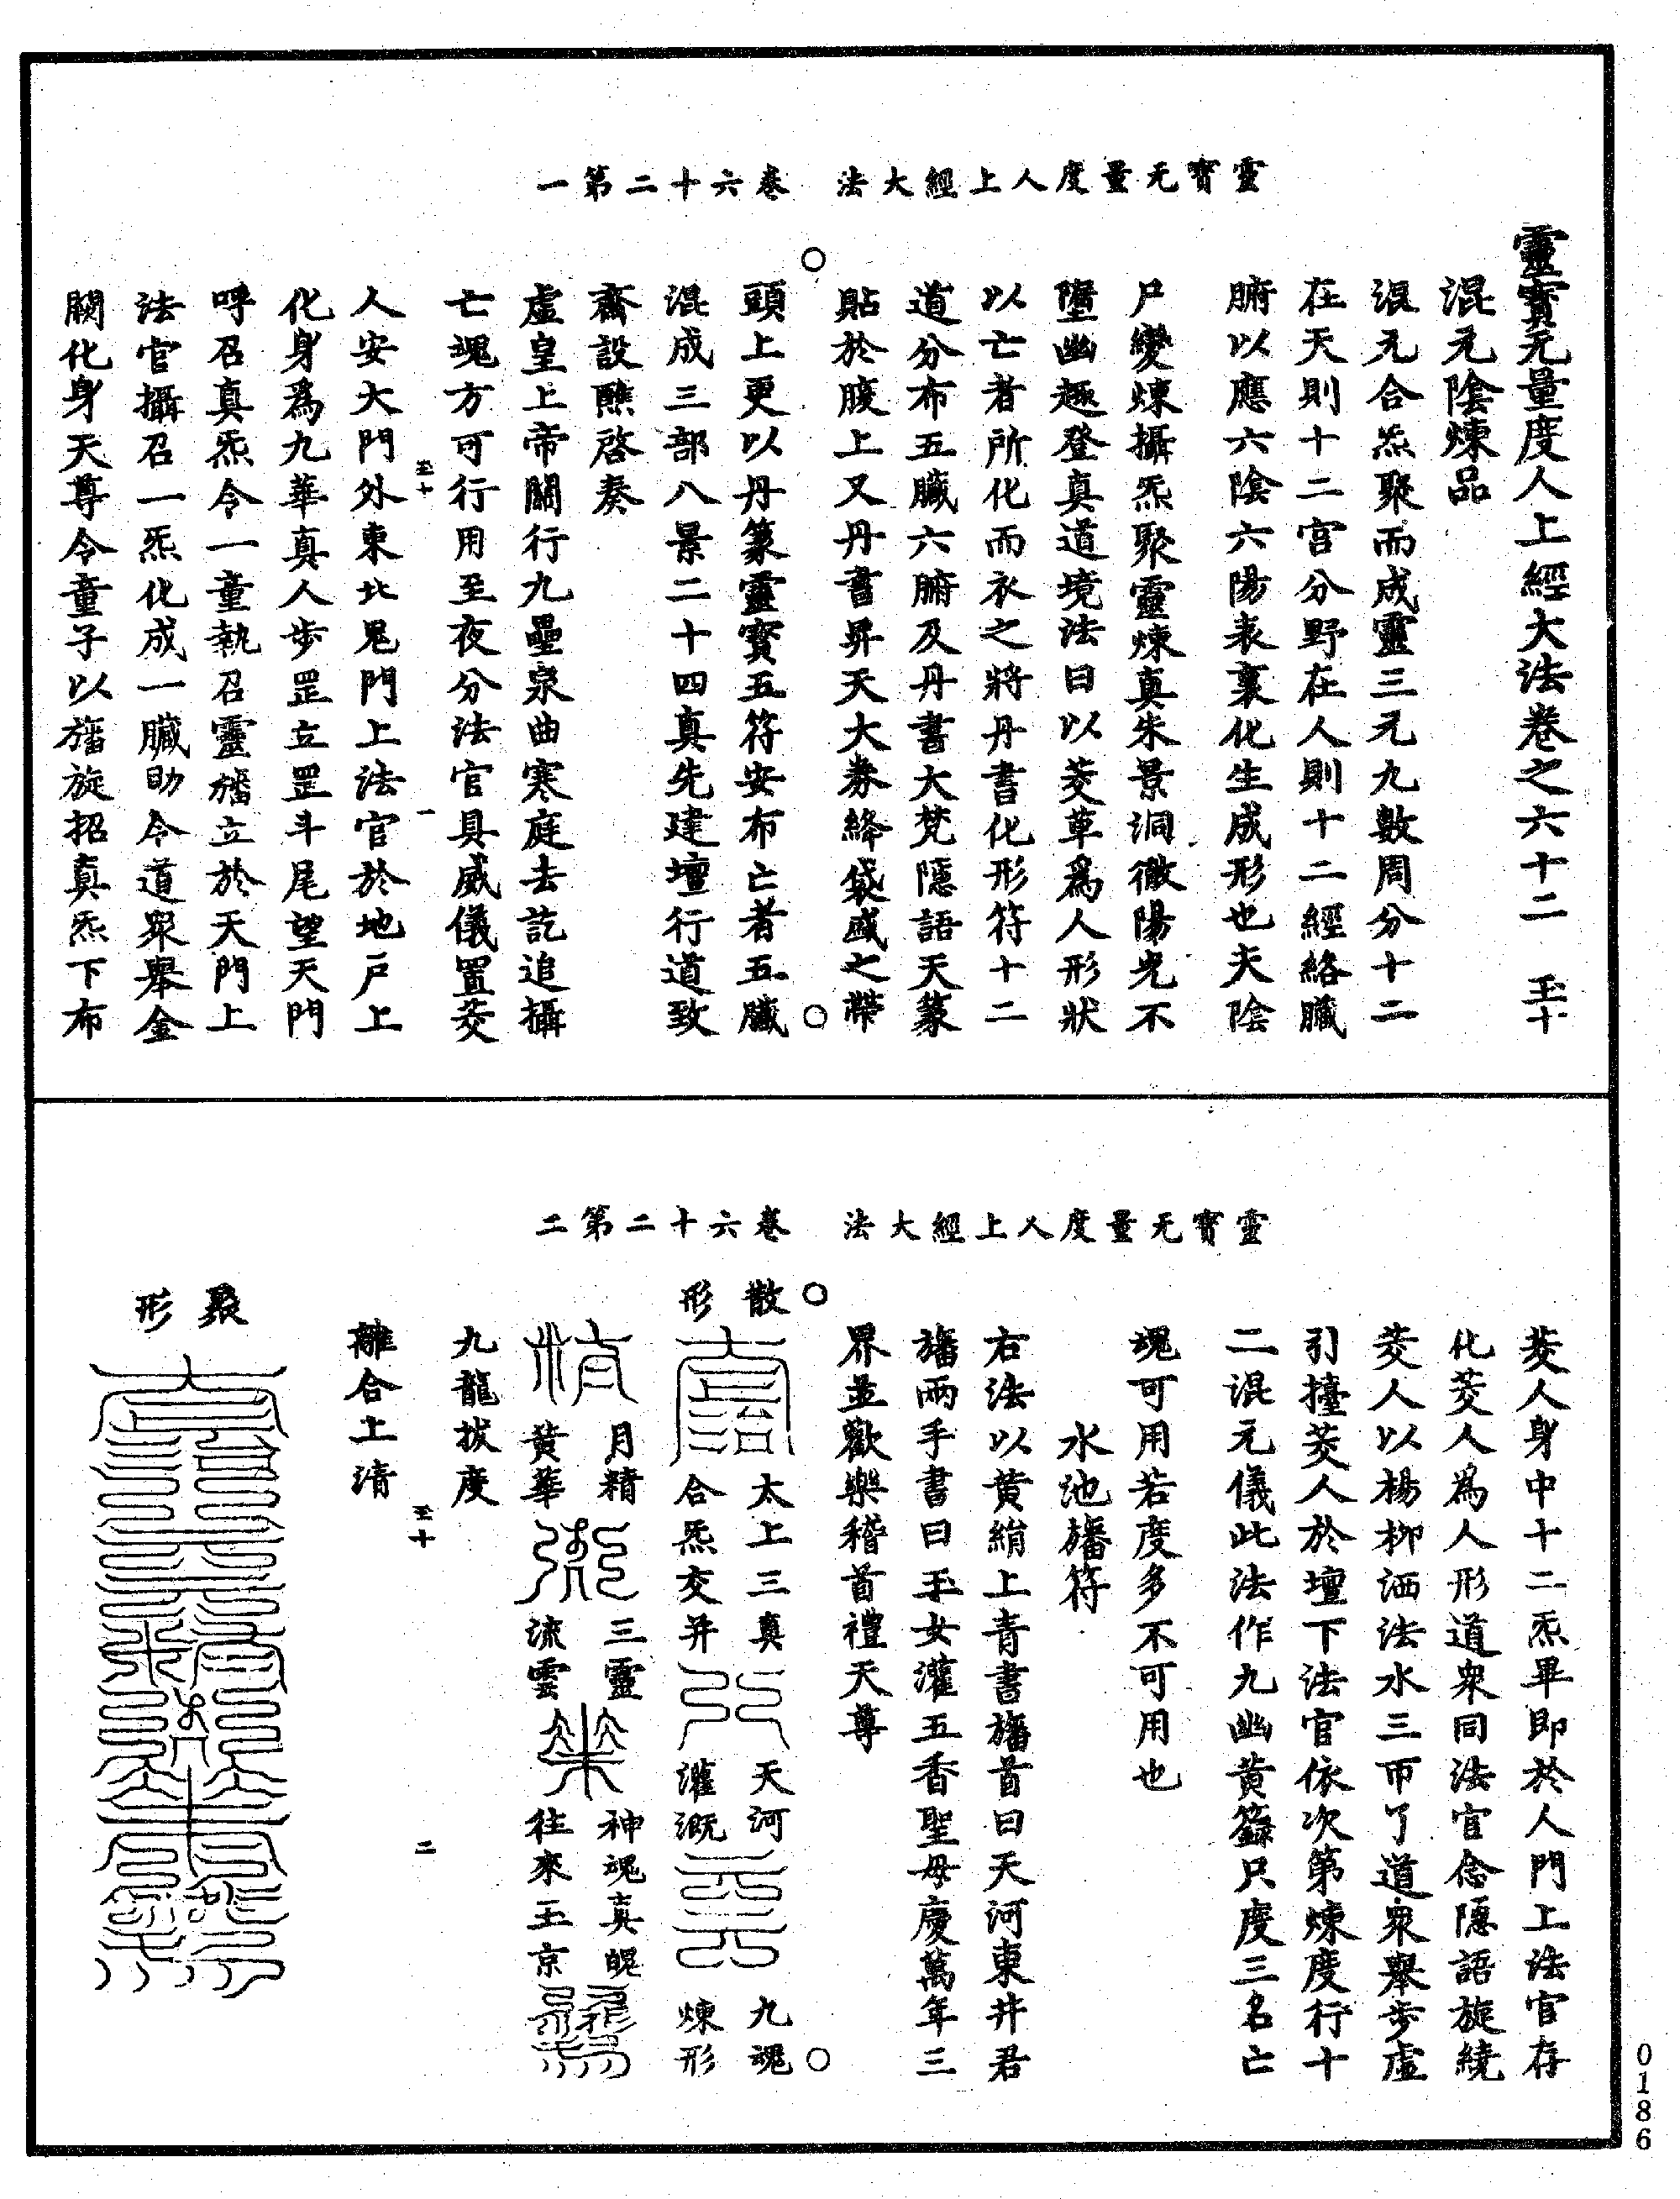 靈寶无量度人上經大法　卷六十二第一
靈寶无量度人上經大法卷之六十二　玉十
混元陰煉品
混元合炁聚而成靈三元九數周分十二
在天則十二宫分野在人則十二經絡臟
腑以應六陰六陽表裏化生成形也夫陰
尸變煉攝炁聚靈煉真朱景洞徹陽光不
墮幽趣登真道境法曰以茭草爲人形狀
以亡者所化而衣之將丹書化形符十二
道分布五臟六腑及丹書大梵隱語天篆
貼於腹上又丹書昇天大券絳袋盛之帶
頭上更以丹篆靈寶五符安布亡者五臟
混成三部八景二十四真先建壇行道致
齋設醮啓奏
虛皇上帝闕行九壘泉曲寒庭去訖追攝
亡魂方可行用至夜分法官具威儀置茭
玉十　一
人安大門外東北鬼門上法官於地户上
化身爲九華真人步罡立罡斗尾望天門
呼召真炁令一童執召靈旛立於天門上
法官攝召一炁化成一臟助令道衆舉金
闕化身天尊令童子以旛旋招真炁下布
靈寶无量度人上經大法　卷六十二第二
茭人身中十二炁畢即於人門上法官存
化茭人爲人形道衆同法官念隱語旋繞
茭人以楊柳洒法水三帀了道衆舉步虛
引擡茭人於壇下法官依次第煉度行十
二混元儀此法作九幽黄籙只度三名亡
魂可用若度多不可用也
水池旛符
右法以黄絹上青書旛首曰天河東井君
旛兩手書曰玉女灌五香聖母慶萬年三
界並歡樂稽首禮天尊
散形
太上三真合炁交并
天河灌溉
九魂煉形
月精黄華
三靈流雲
神魂真魄往來玉京
九龍拔度
玉十　二
離合上清
聚形
0186